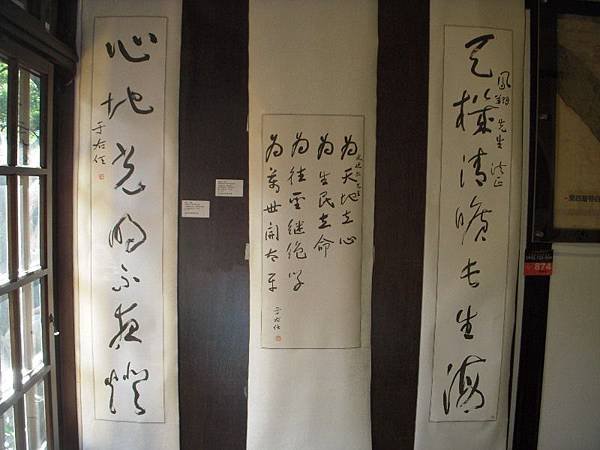 天機清曠長生海
鳳翔先生法正
為天地立心
為生民立命
為往聖繼絕學
為萬世開太平
于右任
心地光明不夜燈
于右任
874